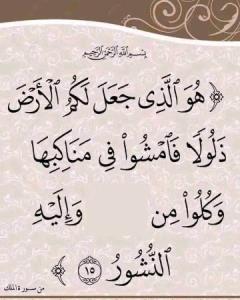 بسم الله الرحمن الرحيم
﴿ هُوَ ٱلَّذِى جَعَلَ لَكُمُ ٱلْأَرْضَ
ذَلُولًا فَٱمْشُوا۟ فِى مَنَاكِبِهَا
وَكُلُوا۟ مِن وَإِلَيْهِ
ٱلنُّشُورُ ١٥ ﴾
من سورة الملك